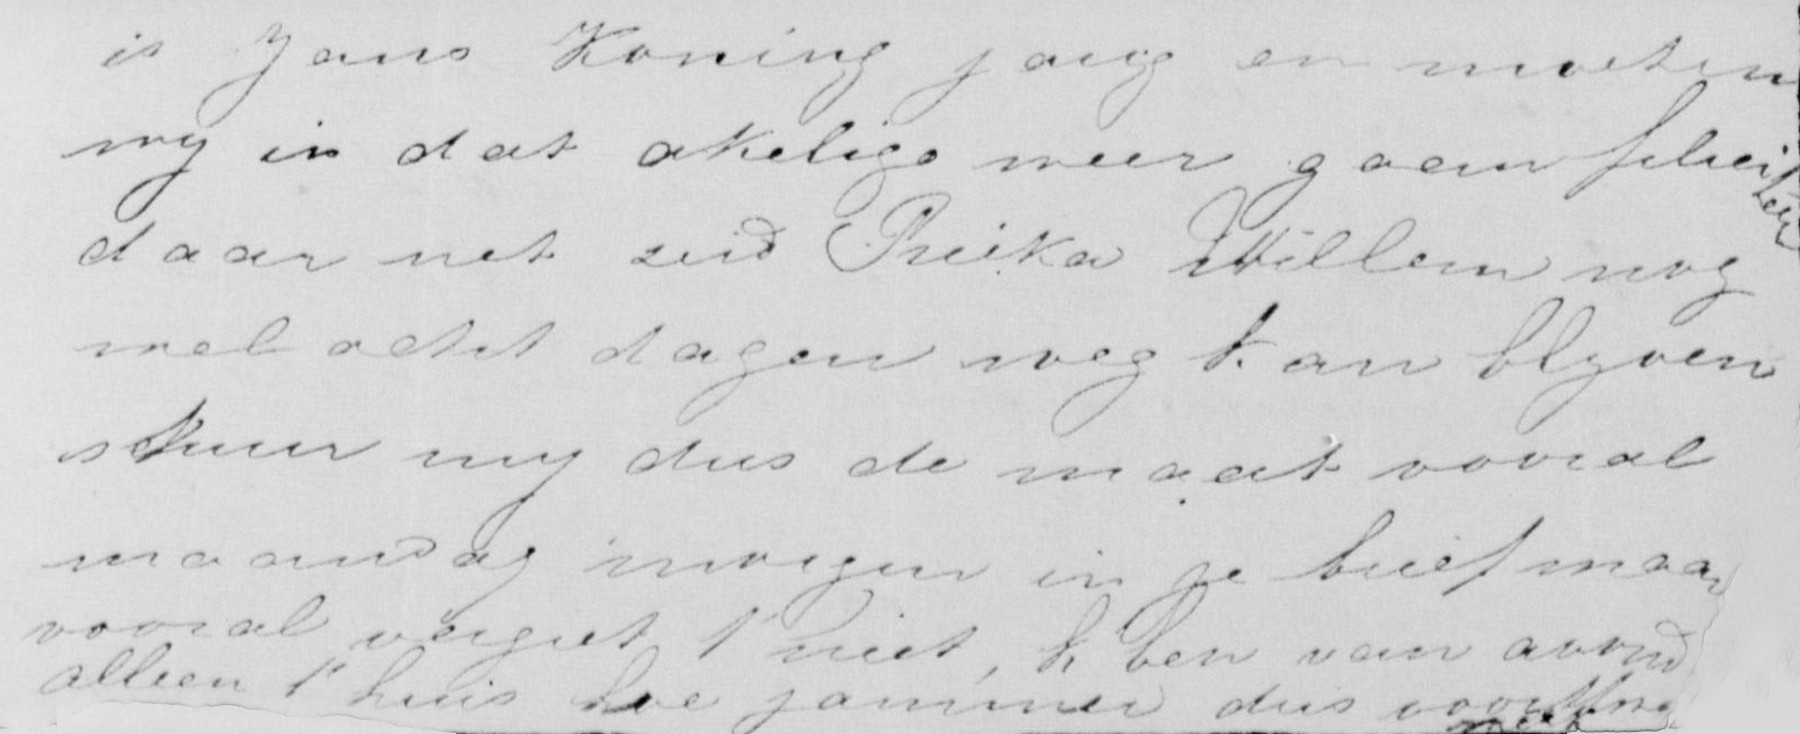 is Jans Koning jarig en moeten
wy in dat akelige weer gaan feliciteer
daar net zeid Preika Willem nog
wel acht dagen weg kan blyven
stuur my dus de maat vooral
maandag morgen in je brief maar
vooral vergeet t' niet, k ben van avond
alleen t' huis hoe jammer dus